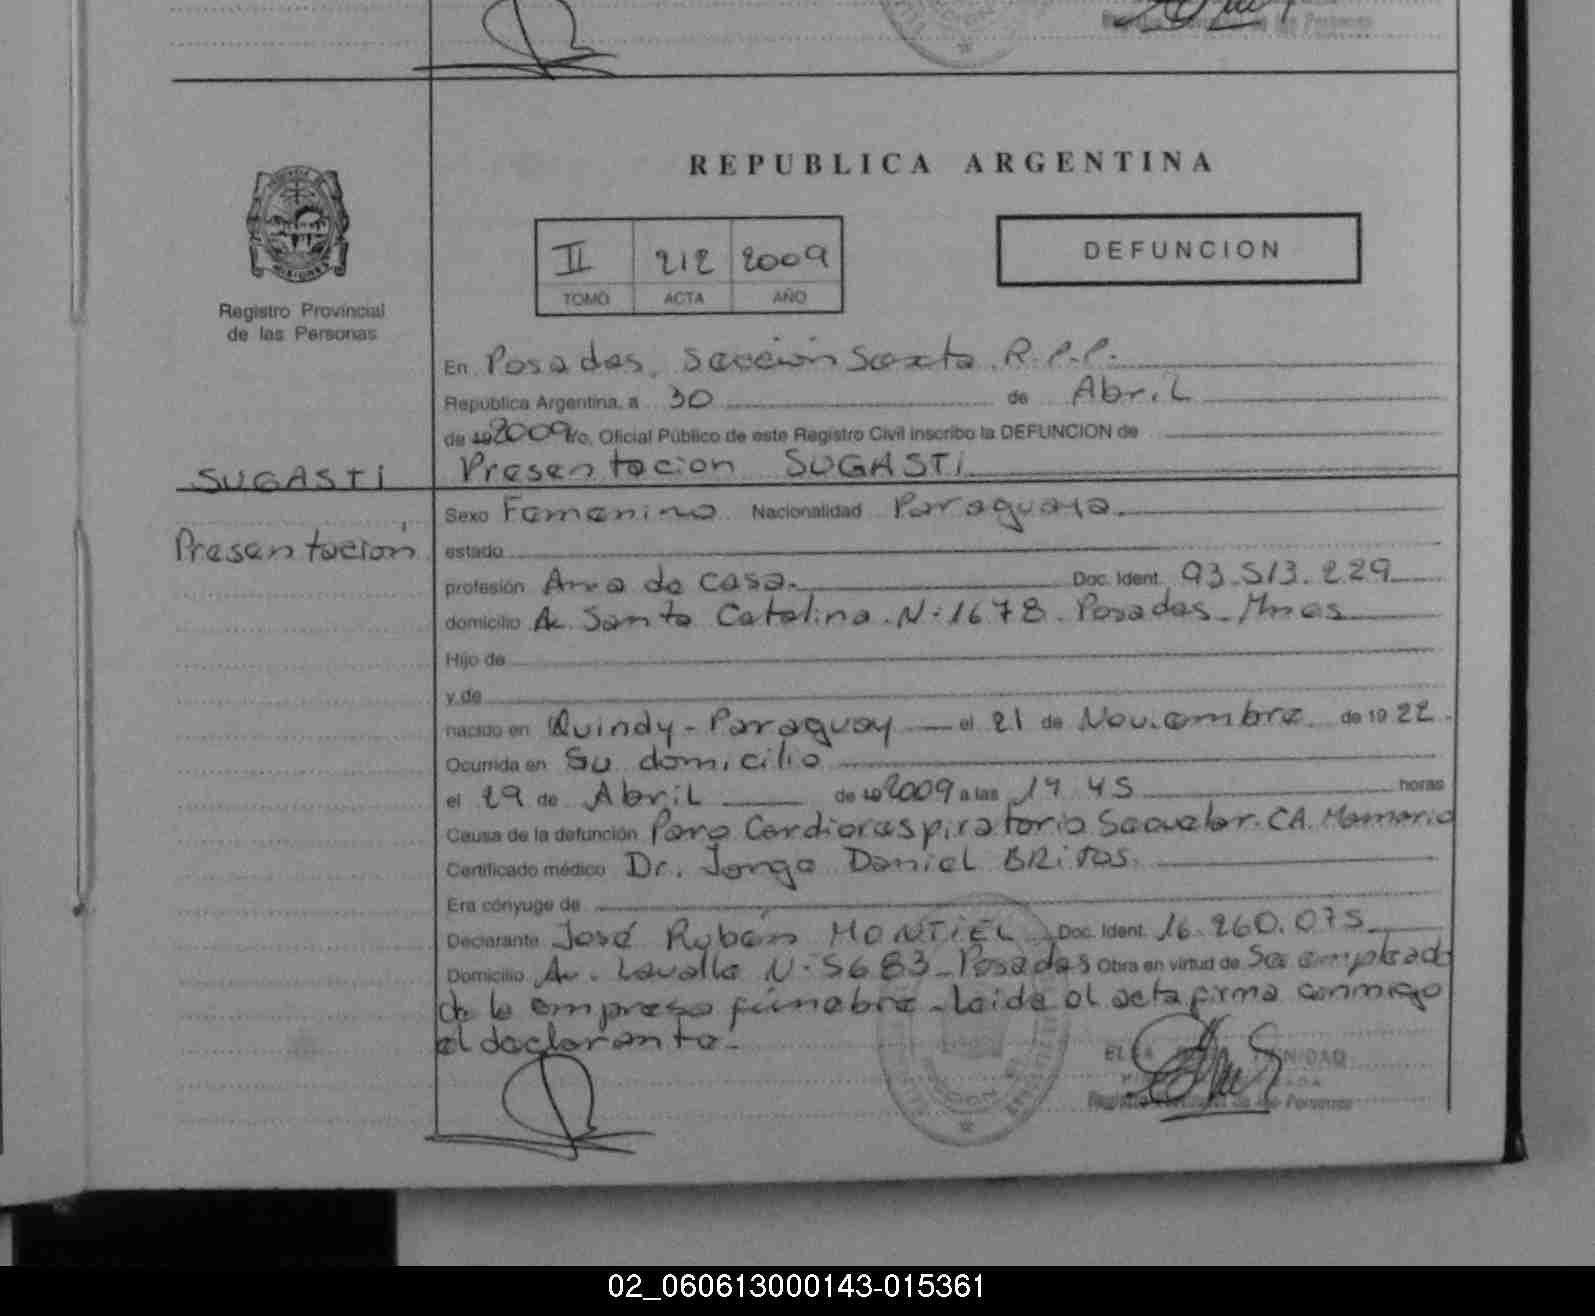 REPUBLICA ARGENTINA
II 212 2009
TOMO ACTA AÑO
DEFUNCION
Registro Provincial
de las Personas
En Posadas, Sección Sexta R.P.P.
República Argentina, a 30 de Abril
de 19 2009 Yo, Oficial Público de este Registro Civil inscribo la DEFUNCION de
Presentacion SUGASTI
SUGASTI
Presentación
Sexo Femenino Nacionalidad Paraguaya
estado
profesión Ama de casa. Doc. Ident. 93.513.229
domicilio Av. Santa Catalina N° 1678 Posadas - Mnes
Hijo de
y de
nacido en Quindy - Paraguay el 21 de Noviembre de 19 22
Ocurrida en Su domicilio
el 29 de Abril de 19 2009 a las 19 45 horas
Causa de la defunción Paro Cardiorespiratorio Secuelar. CA. Mamario
Certificado médico Dr. Jorge Daniel BRITOS.
Era cónyuge de
Declarante José Rubén MONTIEL Doc. Ident. 16.260.075
Domicilio Av. Lavalle N° 5683 - Posadas Obra en virtud de Ser empleado
de la empresa fúnebre - Leida el acta firma conmigo
el declarante.
02_060613000143-015361